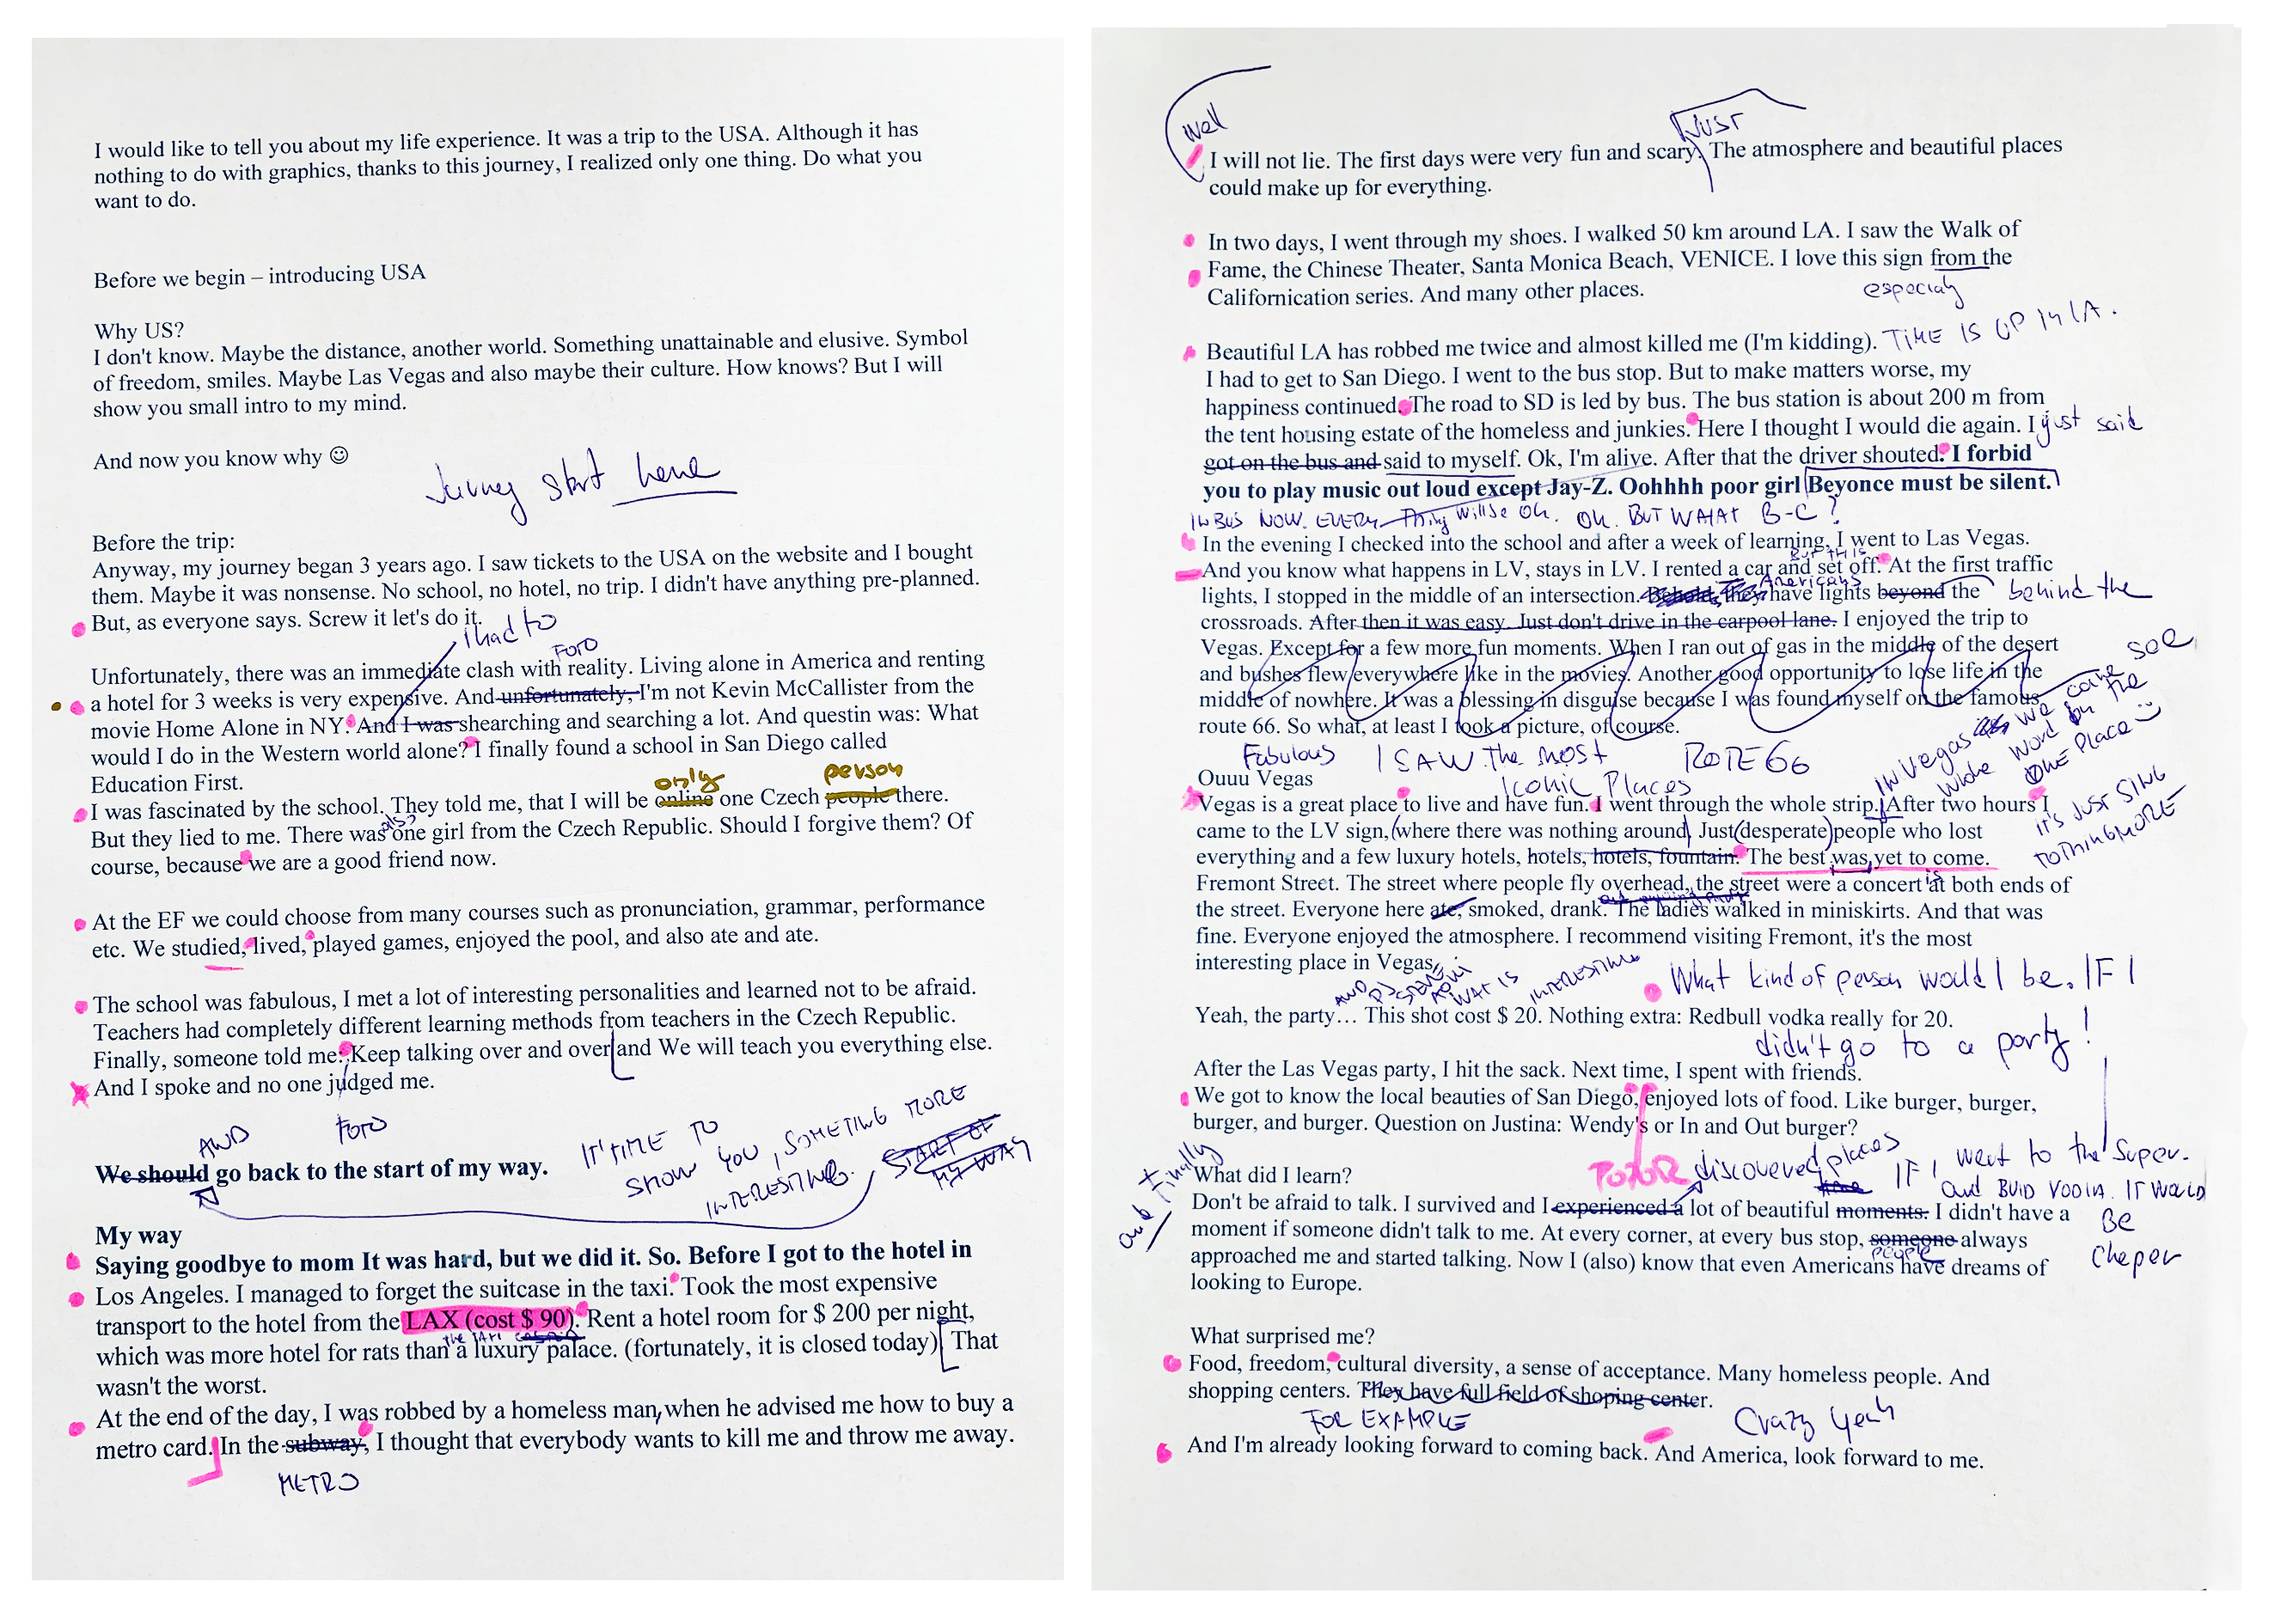 I would like to tell you about my life experience. It was a trip to the USA. Although it has
nothing to do with graphics, thanks to this journey, I realized only one thing. Do what you
want to do.
Before we begin – introducing USA
Why US?
I don't know. Maybe the distance, another world. Something unattainable and elusive. Symbol
of freedom, smiles. Maybe Las Vegas and also maybe their culture. How knows? But I will
show you small intro to my mind.
And now you know why ☺
start here
Before the trip:
Anyway, my journey began 3 years ago. I saw tickets to the USA on the website and I bought
them. Maybe it was nonsense. No school, no hotel, no trip. I didn't have anything pre-planned.
But, as everyone says. Screw it let's do it.
I had to
FOTO
Unfortunately, there was an immediate clash with reality. Living alone in America and renting
a hotel for 3 weeks is very expensive. And unfortunately, I'm not Kevin McCallister from the
movie Home Alone in NY. And I was shearching and searching a lot. And questin was: What
would I do in the Western world alone? I finally found a school in San Diego called
Education First.
only person
I was fascinated by the school. They told me, that I will be online one Czech people there.
also
But they lied to me. There was one girl from the Czech Republic. Should I forgive them? Of
course, because we are a good friend now.
At the EF we could choose from many courses such as pronunciation, grammar, performance
etc. We studied, lived, played games, enjoyed the pool, and also ate and ate.
The school was fabulous, I met a lot of interesting personalities and learned not to be afraid.
Teachers had completely different learning methods from teachers in the Czech Republic.
Finally, someone told me: Keep talking over and over and We will teach you everything else.
And I spoke and no one judged me.
AND FOTO
IT'S TIME TO
SHOW YOU, SOMETING MORE
INTERESTING.
START OF
MY WAY
We should go back to the start of my way.
My way
Saying goodbye to mom It was hard, but we did it. So. Before I got to the hotel in
Los Angeles. I managed to forget the suitcase in the taxi. Took the most expensive
transport to the hotel from the LAX (cost $ 90). Rent a hotel room for $ 200 per night,
which was more hotel for rats than a luxury palace. (fortunately, it is closed today) That
wasn't the worst.
At the end of the day, I was robbed by a homeless man, when he advised me how to buy a
metro card. In the subway, I thought that everybody wants to kill me and throw me away.
METRO
Well
JUST
I will not lie. The first days were very fun and scary. The atmosphere and beautiful places
could make up for everything.
In two days, I went through my shoes. I walked 50 km around LA. I saw the Walk of
Fame, the Chinese Theater, Santa Monica Beach, VENICE. I love this sign from the
Californication series. And many other places.
especialy
Beautiful LA has robbed me twice and almost killed me (I'm kidding). TIME IS UP IN LA.
I had to get to San Diego. I went to the bus stop. But to make matters worse, my
happiness continued. The road to SD is led by bus. The bus station is about 200 m from
the tent housing estate of the homeless and junkies. Here I thought I would die again. I just said
got on the bus and said to myself. Ok, I'm alive. After that the driver shouted. I forbid
you to play music out loud except Jay-Z. Oohhhh poor girl Beyonce must be silent.
IN BUS NOW. EVERY Thing will be Ok. OK. BUT WHAAT B-C?
In the evening I checked into the school and after a week of learning, I went to Las Vegas.
BUT THIS
And you know what happens in LV, stays in LV. I rented a car and set off. At the first traffic
Americans
lights, I stopped in the middle of an intersection. Behold, They have lights beyond the behind the
crossroads. After then it was easy. Just don't drive in the carpool lane. I enjoyed the trip to
Vegas. Except for a few more fun moments. When I ran out of gas in the middle of the desert
and bushes flew everywhere like in the movies. Another good opportunity to lose life in the
middle of nowhere. It was a blessing in disguise because I was found myself on the famous
route 66. So what, at least I took a picture, of course.
Fabulous I SAW The most ROTE 66
Iconic Places
IN Vegas we cane see
whole word on the
ONE Place ☺
IT'S JUST SING
NOTHING MORE
Ouuu Vegas
Vegas is a great place to live and have fun. I went through the whole strip. After two hours I
came to the LV sign, (where there was nothing around) Just (desperate) people who lost
everything and a few luxury hotels, hotels, hotels, fountain. The best was yet to come.
Fremont Street. The street where people fly overhead, the street were a concert is at both ends of
the street. Everyone here ate, smoked, drank. The ladies walked in miniskirts. And that was
fine. Everyone enjoyed the atmosphere. I recommend visiting Fremont, it's the most
interesting place in Vegas.
AND WAT IS INTERESTING
What kind of person would I be. IF I
didn't go to a party!
Yeah, the party… This shot cost $ 20. Nothing extra: Redbull vodka really for 20.
After the Las Vegas party, I hit the sack. Next time, I spent with friends.
We got to know the local beauties of San Diego, enjoyed lots of food. Like burger, burger,
burger, and burger. Question on Justina: Wendy's or In and Out burger?
IF I went to the Super.
and BUID VODKA. IT WOULD
Be
Cheper
and Finally
What did I learn?
discovered places
Don't be afraid to talk. I survived and I experienced a lot of beautiful moments. I didn't have a
moment if someone didn't talk to me. At every corner, at every bus stop, someone always
people
approached me and started talking. Now I (also) know that even Americans have dreams of
looking to Europe.
What surprised me?
Food, freedom, cultural diversity, a sense of acceptance. Many homeless people. And
shopping centers. They have full field of shoping center.
FOR EXAMPLE Crazy yeah
And I'm already looking forward to coming back. And America, look forward to me.